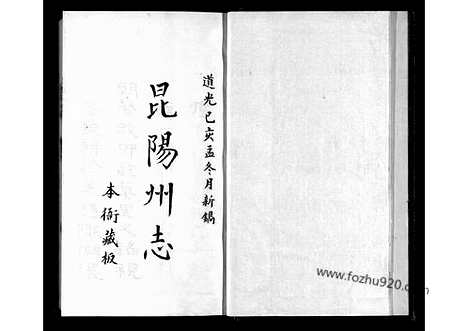 道光己亥孟冬月新鐫
昆陽州志
本衙藏板
www.fozhu920.com